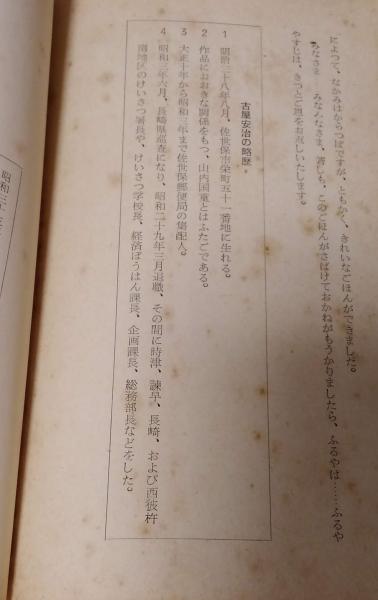 によつて、なかみはからつぽですが、ともかく、きれいなごほんができました。
みなさま みなみなさま、若しも、このごほんがさばけておかねがもうかりましたら、ふるやは……ふるや
やすじは、きつとご恩をお返しいたします。
古屋安治の略歴
1 明治三十八年八月、佐世保市栄町五十一番地に生れる。
2 作品におおきな関係をもつ、山内国重とはふたごである。
3 大正十年から昭和三年まで佐世保郵便局の集配人。
4 昭和三年六月、長崎県巡査になり、昭和二十九年三月退職、その間に時津、諫早、長崎、および西彼杵
南地区のけいさつ署長や、けいさつ学校長、経済ぼうはん課長、企画課長、総務部長などをした。
昭和三